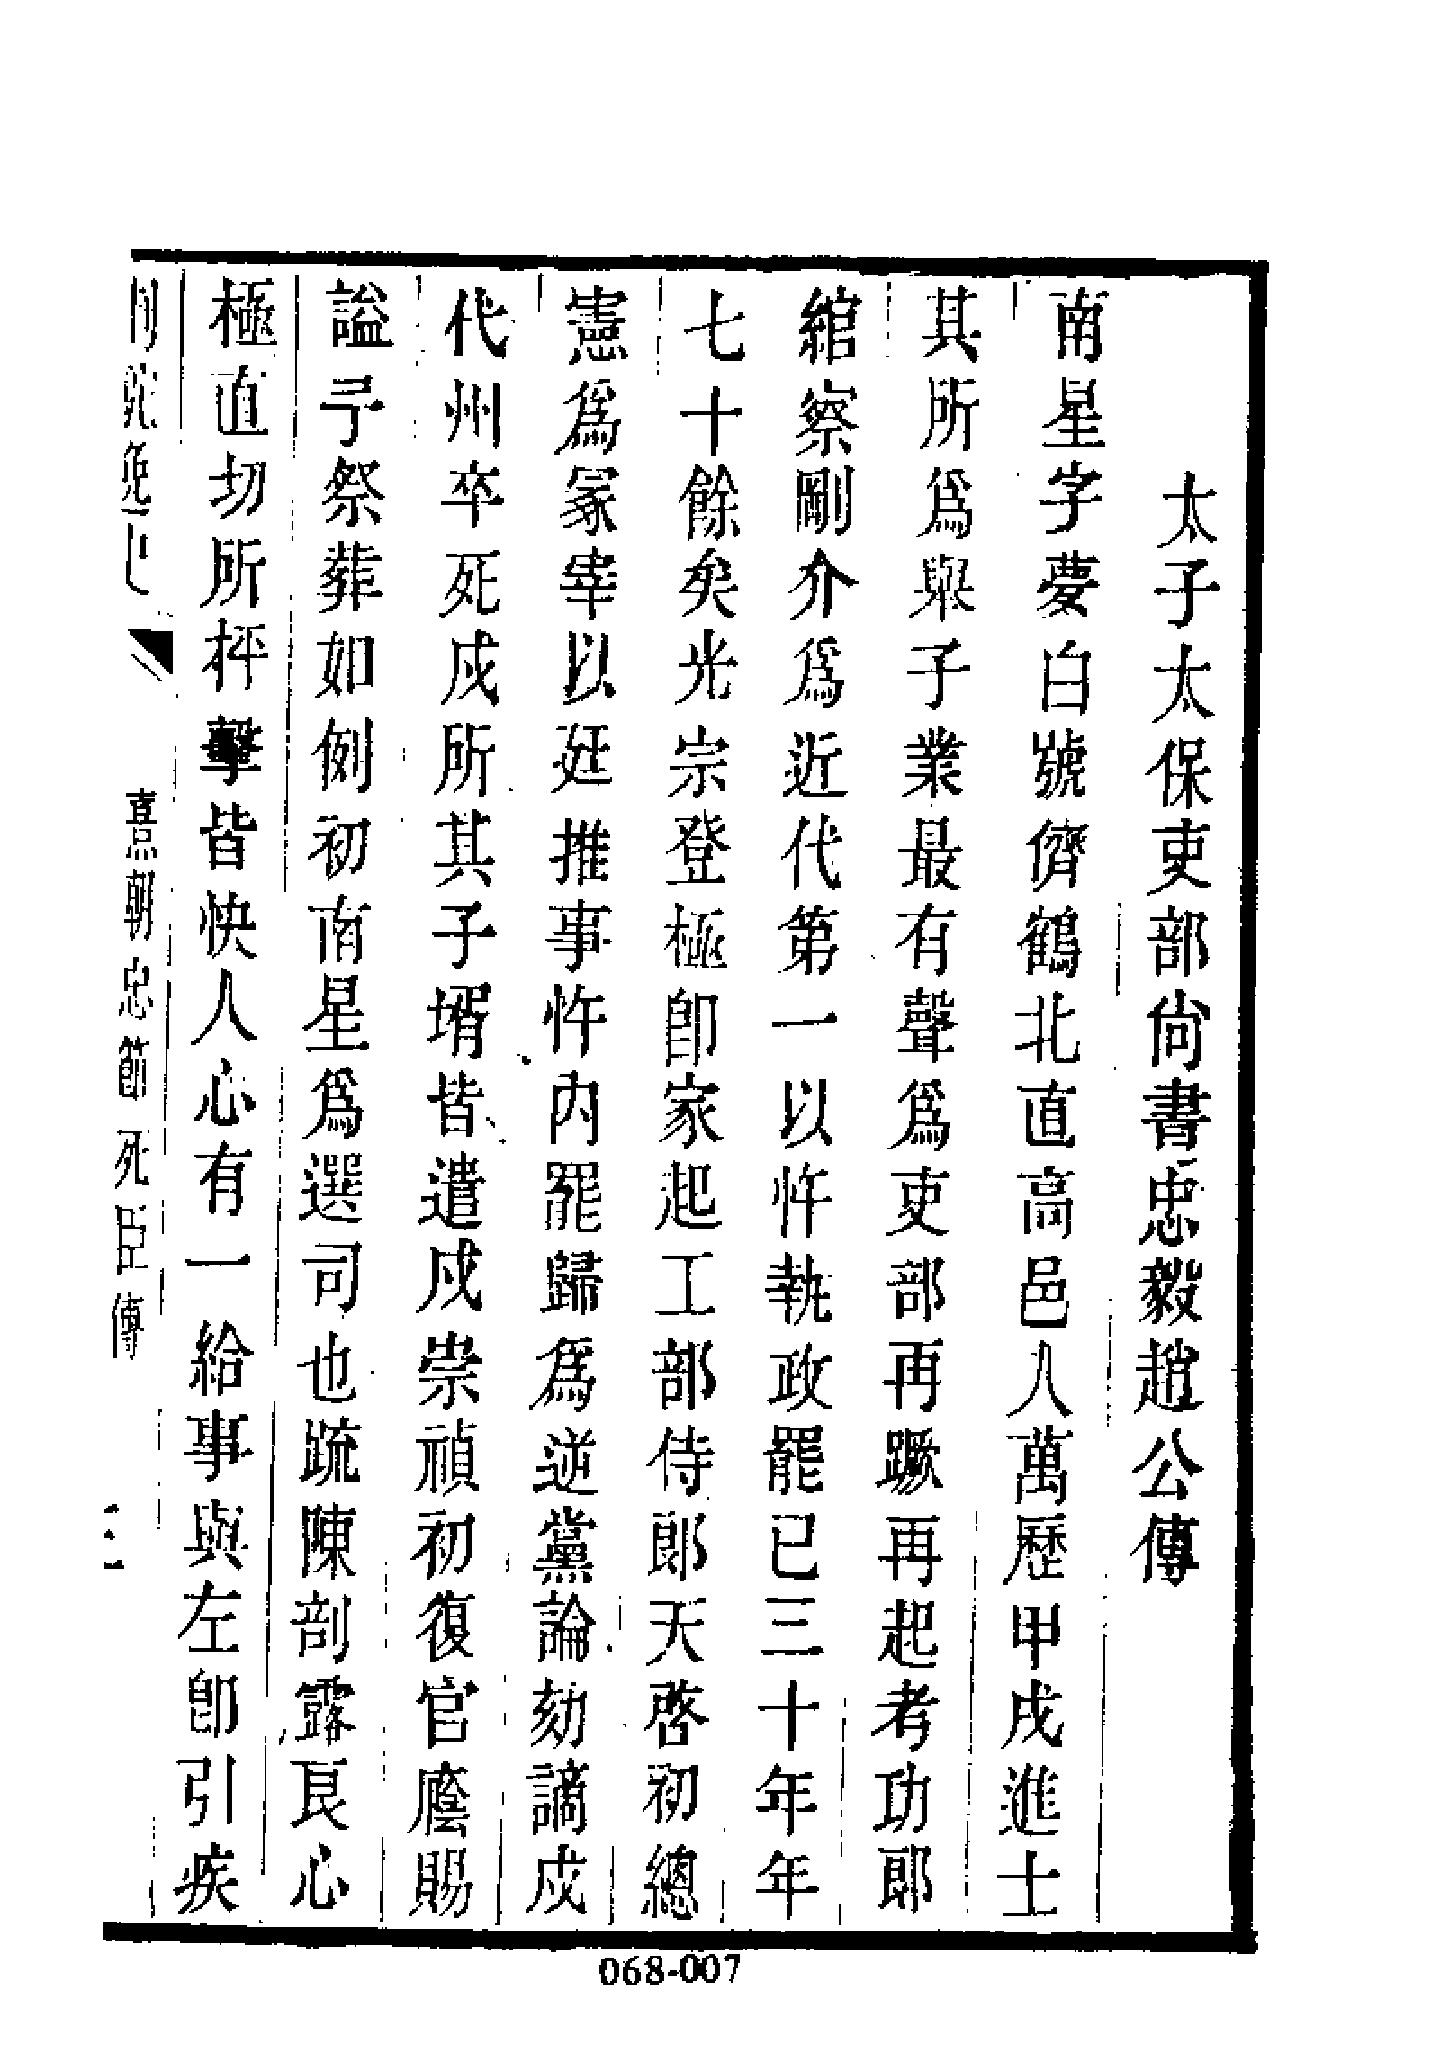 太子太保吏部尚書忠毅趙公傳
南星字夢白號儕鶴北直高邑人萬歷甲戌進士
其所爲舉子業最有聲爲吏部再蹶再起考功郎
綰察剛介爲近代第一以忤執政罷已三十年年
七十餘矣光宗登極卽家起工部侍郎天啓初總
憲爲冢宰以廷推事忤內罷歸爲逆黨論劾謫戍
代州卒死戍所其子壻皆遣戍崇禎初復官廕賜
謚予祭葬如例初南星爲選司也疏陳剖露良心
極直切所抨擊皆快人心有一給事與左卽引疾
荆駝逸史
熹朝忠節死臣傳
三
068-007